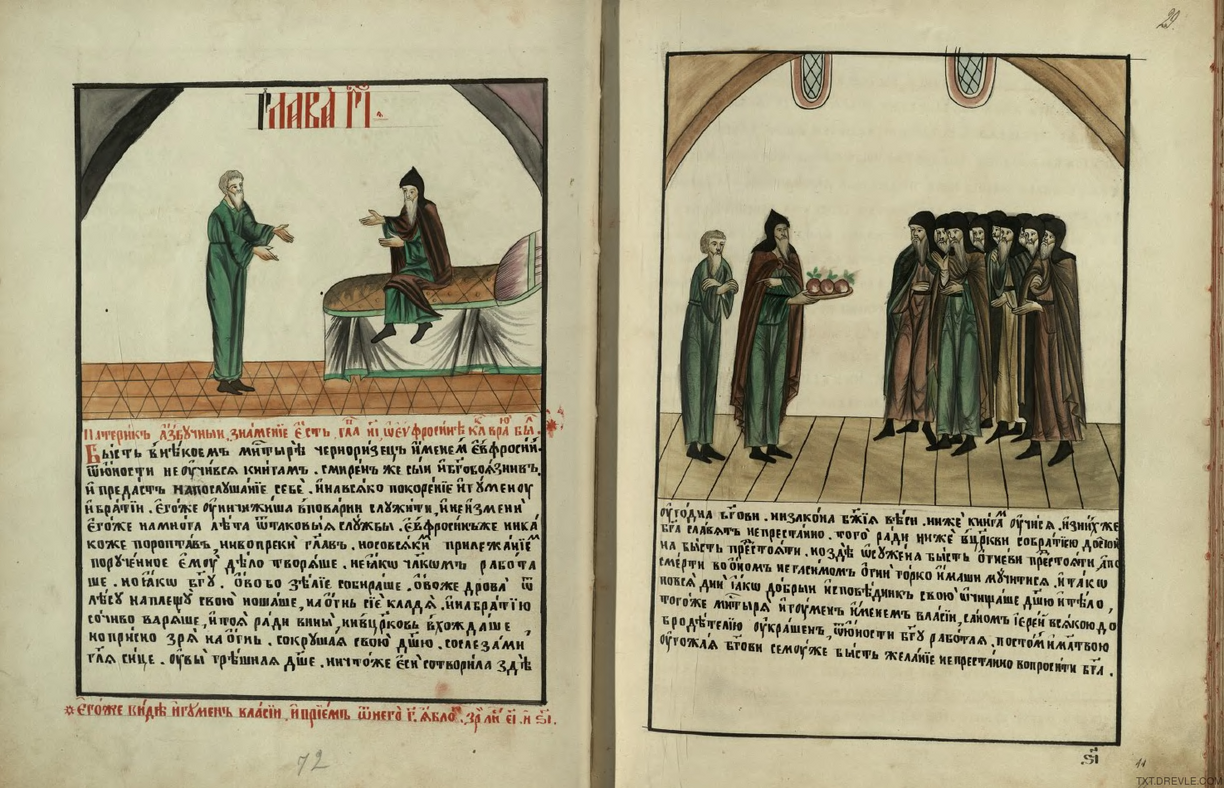 Глава г҃і.
Патерикъ а҆збучныи, знаменїе є҆сть, гла н҃і, ѡ҆ є҆уфросинѣ
Бысть в нѣкоемъ мн҃тырѣ черноризецъ и҆менем є҆вфросин
ѿ юности не оучивсѧ книгамъ . смиренъ же сыи и҆ бг҃обоѧзнивъ .
и҆ предастъ на послушанїе себе . и҆ на всѧко покоренїе и҆гуменоу
и҆ братїи . є҆гоже оучинижиша в поварни служити , и҆ не и҆змени
є҆гоже на многа лѣта ѿ таковыѧ службы . є҆вфросинъже ника
коже пороптавъ , ни вопреки гл҃авъ . но со всѧкимъ прилежанїем
порученное є҆моу дѣло творѧше . не ꙗ҆кѡ чл҃комъ работа
ше . но ꙗ҆кѡ бг҃у . ѻ҆во бо зѣлїе собираше . ѻ҆воже дрова ѿ
лѣсу на плещу свою ношаше , на ѻ҆гнь сїе кладѧ . и҆ на братїю
сочиво варѧше , и҆ тоѧ ради вины , ни в цр҃ковь вхождаше ,
но присно зрѧ на ѻ҆гнь . сокрушаѧ свою дш҃ю . со слезами
гл҃ѧ сице . оувы грѣшнаѧ дш҃е . ничтоже є҆си сотворила здѣ
є҆гоже видѣ и҆гуменъ власїи , и҆ прїемъ ѿ него г҃ . ꙗ҆бло , зри ли є҃і . и ѕ҃і .
29
72
оугодна бг҃ови . ни закона бж҃їѧ вѣси . ниже книгамъ оучисѧ . и҆з нихже
бг҃а славѧтъ непрестанно . того ради ниже в цр҃кви со братїею достои
на бысть предстоѧти . но здѣ ѡ҆сужена бысть ѻ҆гневи предстоѧти . а по
смерти во ѻ҆ном негасимомъ ѻ҆гни горко и҆маши мучитисѧ . и҆ такѡ
по всѧ дни ꙗ҆кѡ добрыи исповѣдникъ свою ѡ҆чищаше дш҃ю и҆ тѣло ,
тогоже мн҃тырѧ и҆гумен и҆менемъ власїи , саном і҆ерей всѧкою до
бродѣтелїю оукрашен , ѿ юности бг҃у работаѧ . постом и҆ мл҃твою
оугожаѧ бг҃ови семоуже бысть желанїе непрестанно вопросити бг҃а .
ѕ҃і
11
TXT.DREVLE.COM